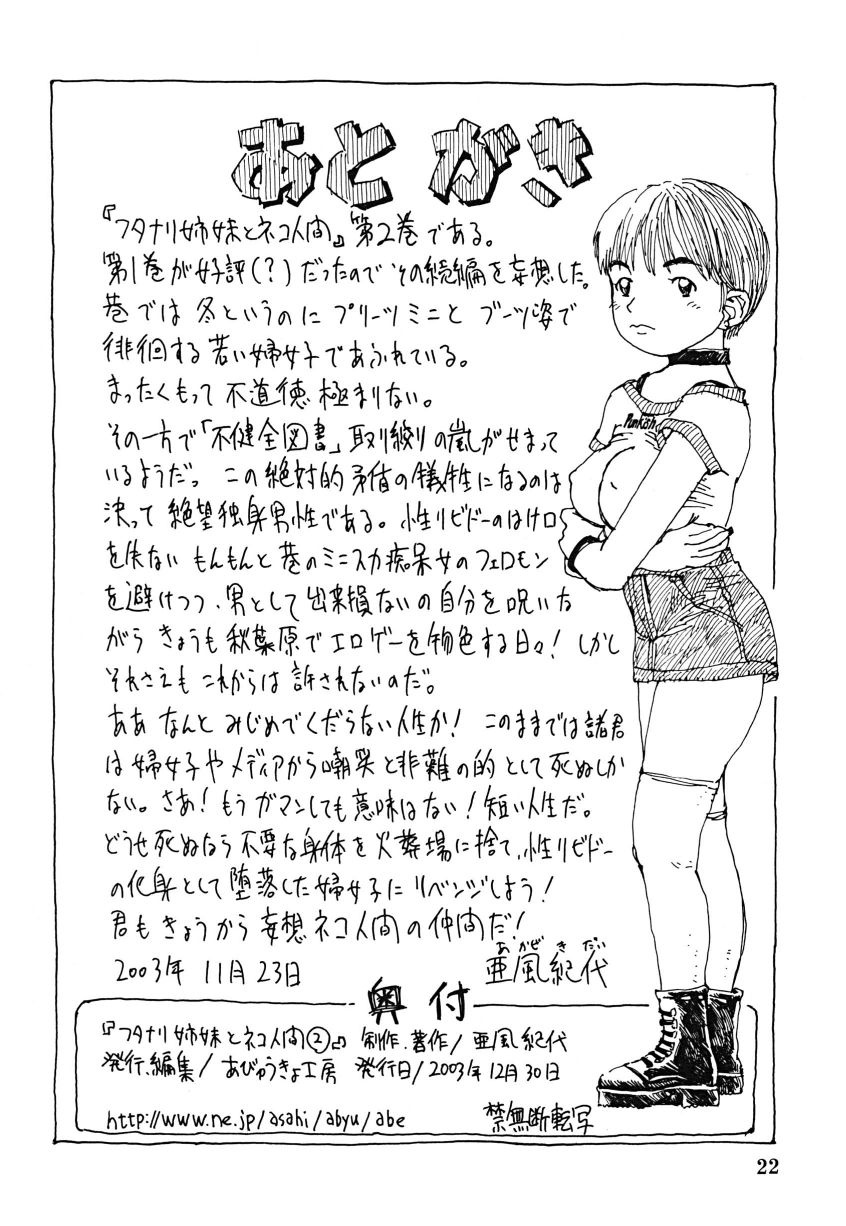 あとがき
『フタナリ姉妹とネコ人間』第2巻である。
第1巻が好評(?)だったのでその続編を妄想した。
巷では冬というのにプリーツミニとブーツ姿で
徘徊する若い婦女子であふれている。
まったくもって不道徳極まりない。
その一方で「不健全図書」取り締りの嵐がせまって
いるようだ。この絶対的矛盾の犠牲になるのは
決って絶望独身男性である。性リビドーのはけ口
を失ない もんもんと巷のミニスカ痴呆女のフェロモン
を避けつつ、男として出来損ないの自分を呪いな
がら きょうも秋葉原でエロゲーを物色する日々! しかし
それさえもこれからは許されないのだ。
ああ なんと みじめでくだらない人生か! このままでは諸君
は婦女子やメディアから嘲笑と非難の的として死ぬしか
ない。さあ! もうガマンしても意味はない! 短い人生だ。
どうせ死ぬなら不要な身体を火葬場に捨て、性リビドー
の化身として堕落した婦女子にリベンジしよう!
君もきょうから妄想ネコ人間の仲間だ!
2003年 11月23日
あ かぜ き だい
亜風紀代
Punkish
奥付
『フタナリ姉妹とネコ人間②』 制作、著作/亜風紀代
発行、編集/あびゅうきょ工房 発行日/2003年12月30日
http://www.ne.jp/asahi/abyu/abe 禁無断転写
22